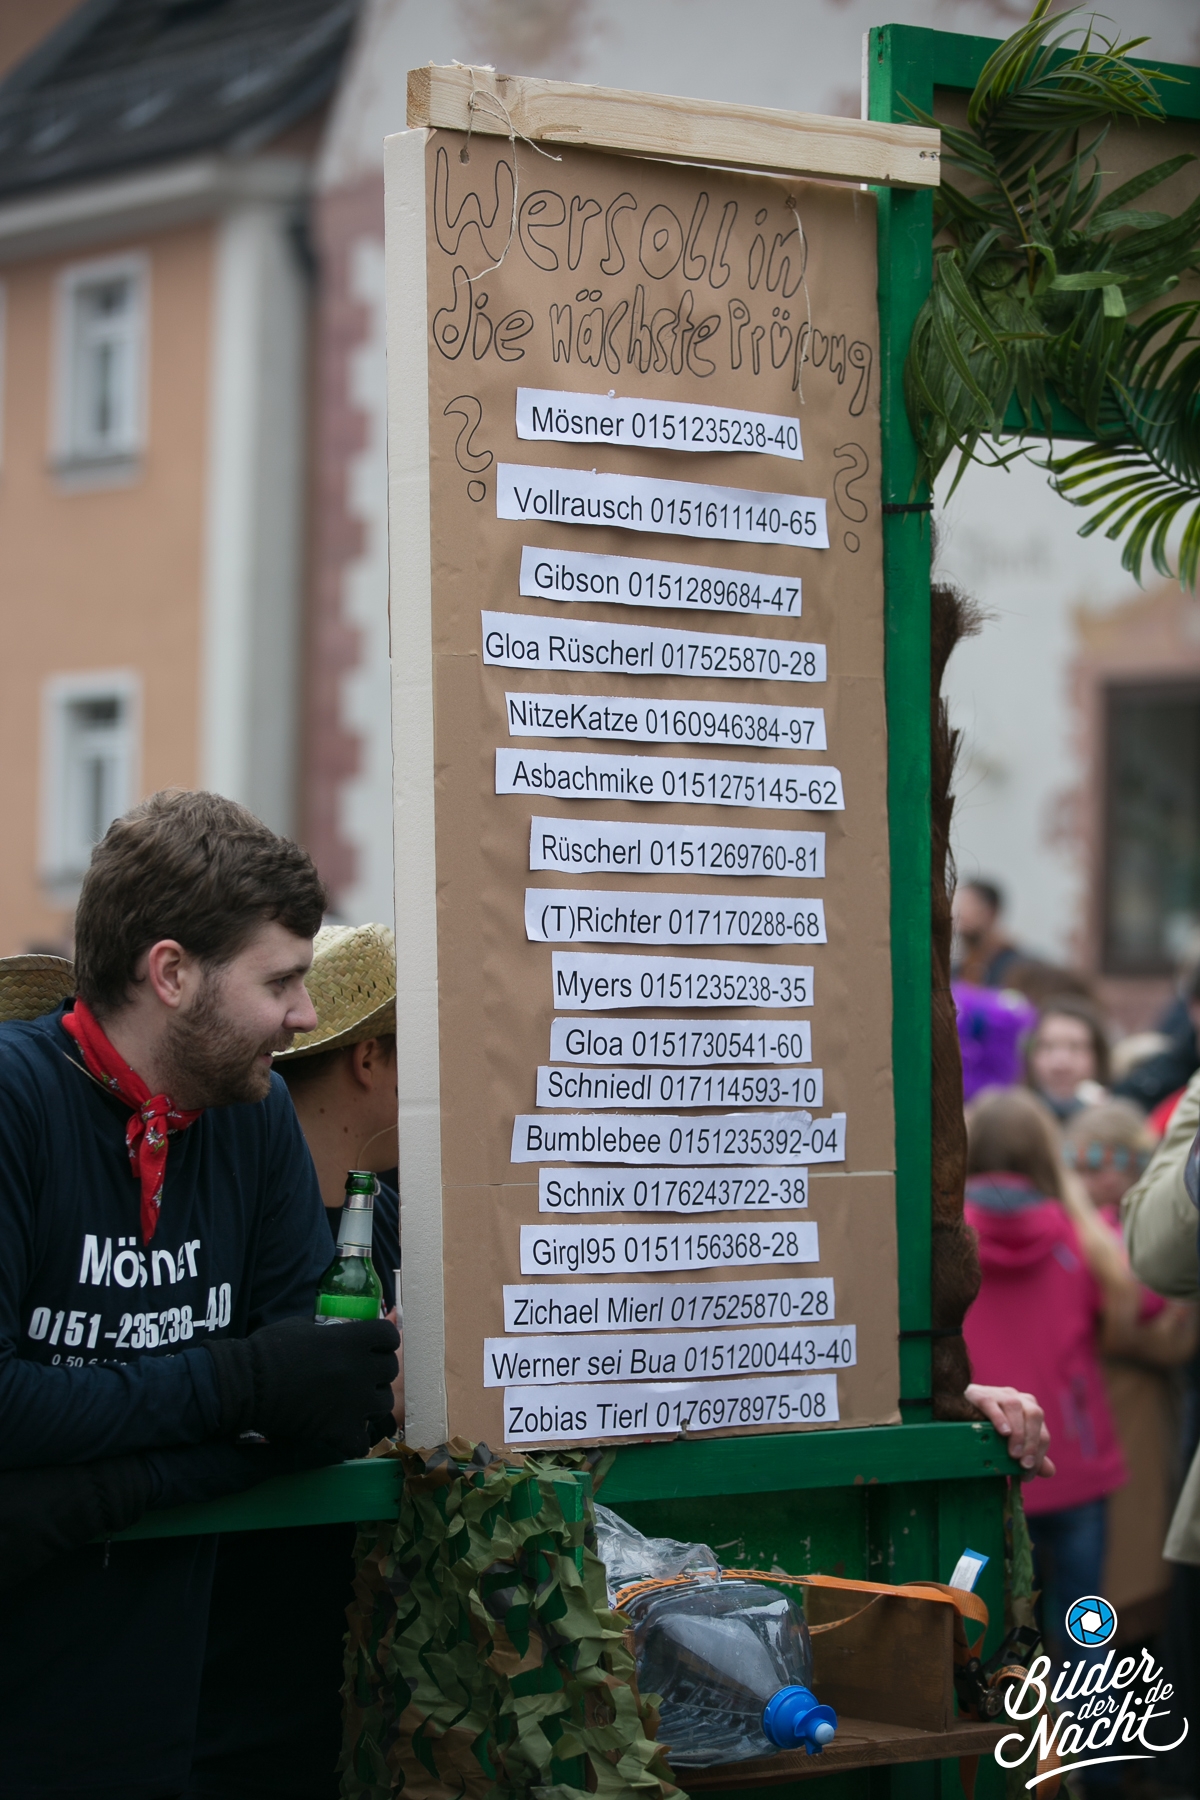 Wer soll in
die nächste Prüfung
? ?
Mösner 0151235238-40
Vollrausch 0151611140-65
Gibson 0151289684-47
Gloa Rüscherl 017525870-28
NitzeKatze 0160946384-97
Asbachmike 0151275145-62
Rüscherl 0151269760-81
(T)Richter 017170288-68
Myers 0151235238-35
Gloa 0151730541-60
Schniedl 017114593-10
Bumblebee 0151235392-04
Schnix 0176243722-38
Girgl95 0151156368-28
Zichael Mierl 017525870-28
Werner sei Bua 0151200443-40
Zobias Tierl 0176978975-08
Mösner
0151-235238-40
Bilder
der
Nacht.de